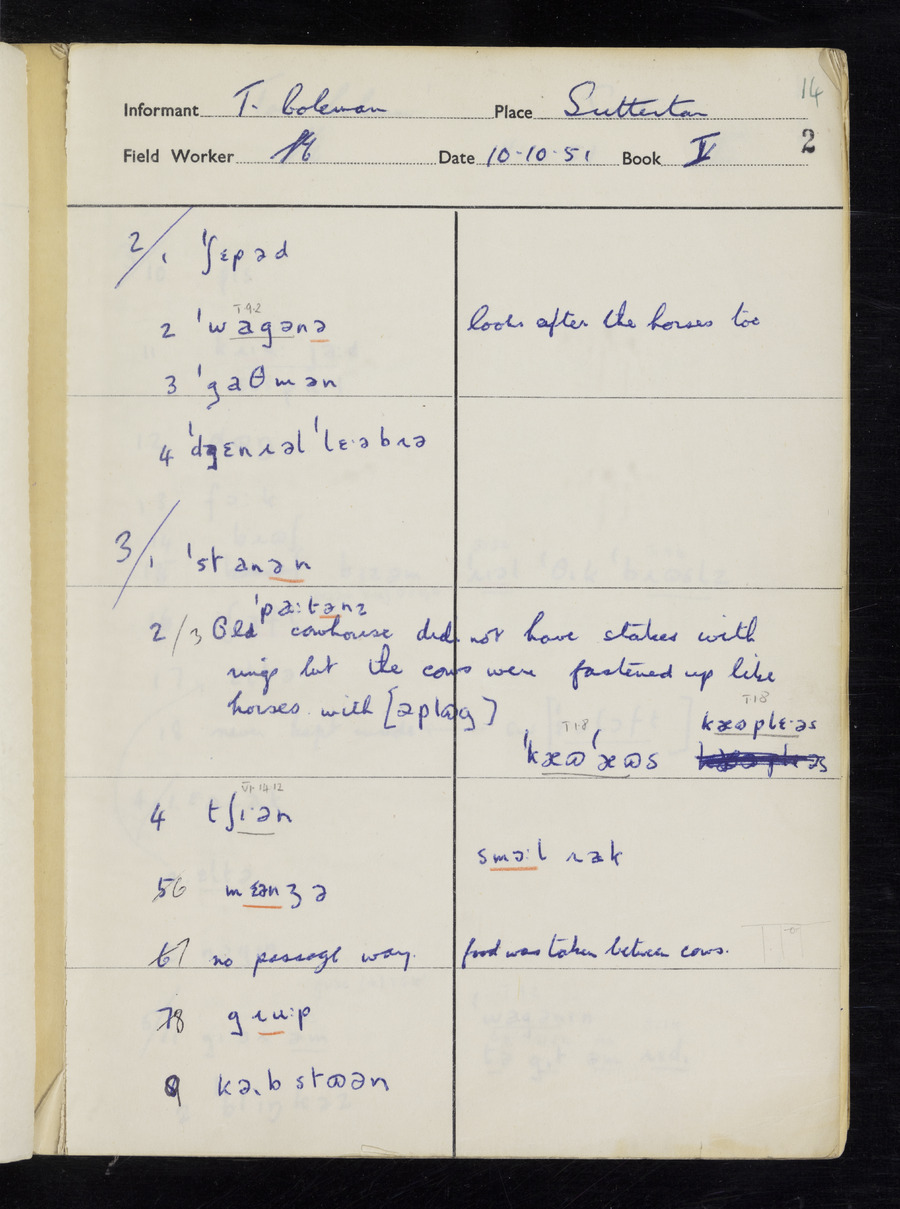 14
Informant T. Coleman Place Sutterton 2
Field Worker Date 10-10-51 Book V
2/ 1 ˈʃɛpəd
V.9.2
2 ˈwagənə looks after the horses too
3 ˈgaθmən
4 ˈdʒɛnɹəl ˈlɛ·əbɹə
3/ 1 ˈstanən
ˈpa:tənz
2/3 Old cowhouse did not have stakes with
rings but the cows were fastened up like
horses with [əplɒg]
V.1.8 V.1.8
ˈkæʊˈæʊs kæʊplɛ·əs
VI.14.12
4 tʃɪ·ən
smɔ:l ɹæk
6 mɛənʒə
7 no passage way. food was taken between cows.
8 gɹu:p
9 kə.bstʊən